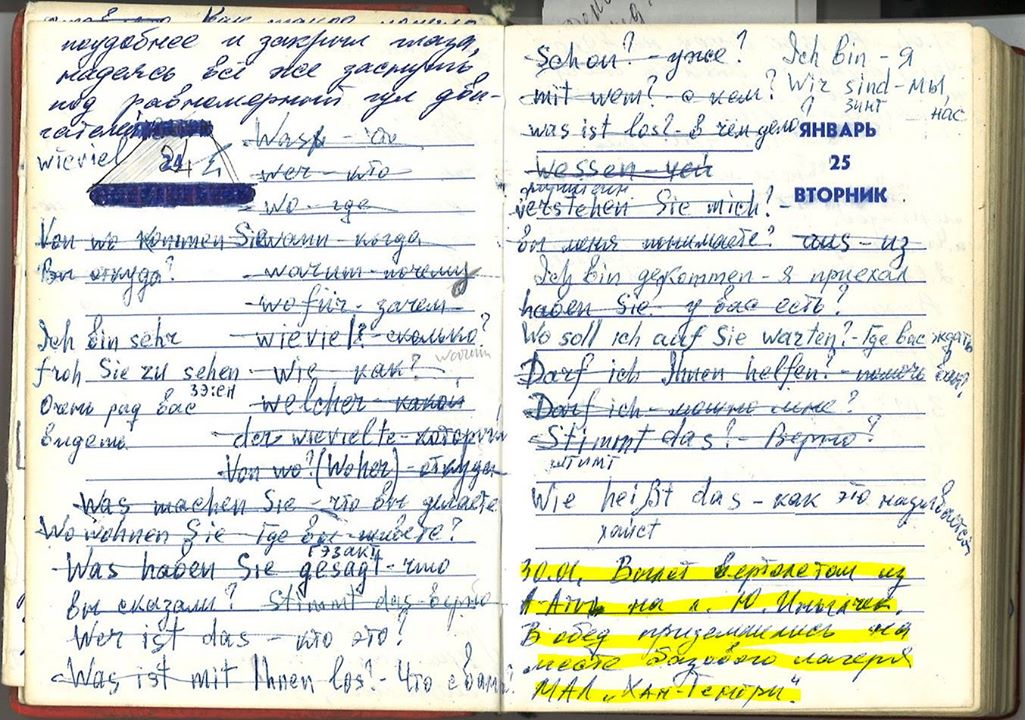 поудобнее и закрыл глаза,
надеясь всё же заснуть
под равномерный гул дви-
гателей
wieviel
24
Was - что
wer - кто
wo - где
Von wo kommen Sie
wann - когда
Вы откуда?
warum - почему
wofür - зачем
Ich bin sehr
wieviel? - сколько?
warum
froh Sie zu sehen
зэ:ен
wie - как?
Очень рад вас
welcher - какой
видеть
der wievielte - который
Von wo? (Woher) - откуда
Was machen Sie - что вы делаете
Wo wohnen Sie - где вы живёте?
гэзакт
Was haben Sie gesagt - что
вы сказали? Stimmt das - верно
Wer ist das - кто это?
Was ist mit Ihnen los? - Что с вами?
Schon? - уже? Ich bin - я
mit wem? - с кем? Wir sind - мы,
зинт нас
was ist los? - в чём дело?
ЯНВАРЬ
25
ВТОРНИК
Wessen - чей
verstehen Sie mich? -
вы меня понимаете? aus - из
Ich bin gekommen - я приехал
haben Sie - у вас есть?
Wo soll ich auf Sie warten? - Где вас ждать
Darf ich Ihnen helfen? - помочь вам?
Darf ich - можно мне?
Stimmt das? - Верно?
штимт
Wie heißt das - как это называется
хайст
30.01. Вылет вертолетом из
А-Аты на л. Ю. Иныльчек.
В обед приземлились на
месте базового лагеря
МАЛ „Хан-Тенгри".